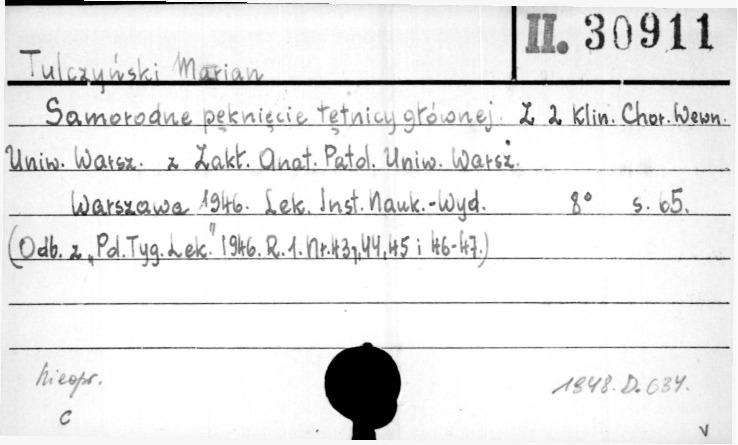 II. 30911
Tulczyński Marian
Samorodne pęknięcie tętnicy głównej. Z 2 Klin. Chor. Wewn.
Uniw. Warsz. z Zakł. Anat. Patol. Uniw. Warsz.
Warszawa 1946. Lek. Inst. Nauk.-Wyd. 8° s. 65.
(Odb. z „Pol. Tyg. Lek." 1946. R. 1. Nr. 43, 44, 45 i 46-47.)
Nieopr. 1948. D. 634.
C v